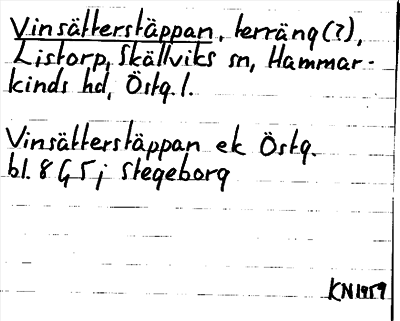 Vinsätterstäppan, terräng(?),
Listorp, Skällviks sn, Hammar-
kinds hd, Östg.l.
Vinsätterstäppan ek Östg.
bl. 8 G 5 j Stegeborg
KN1959